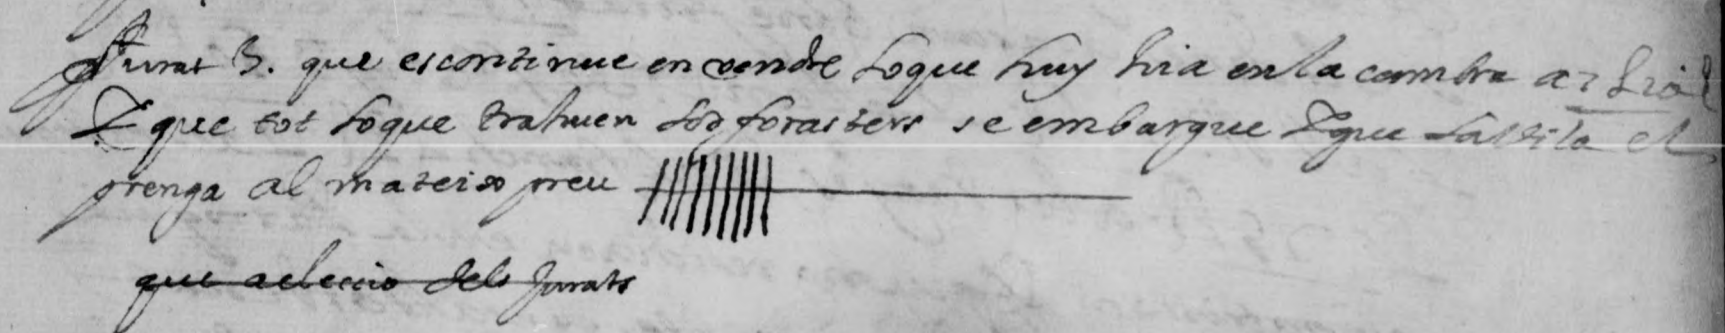 Jurat 3. que es continue en vendre lo que huy hia en la cambra a
E que tot lo que trahuen los forasters se embargue E que la vila el
prenga al mateix preu
que aeleccio dels Jurats